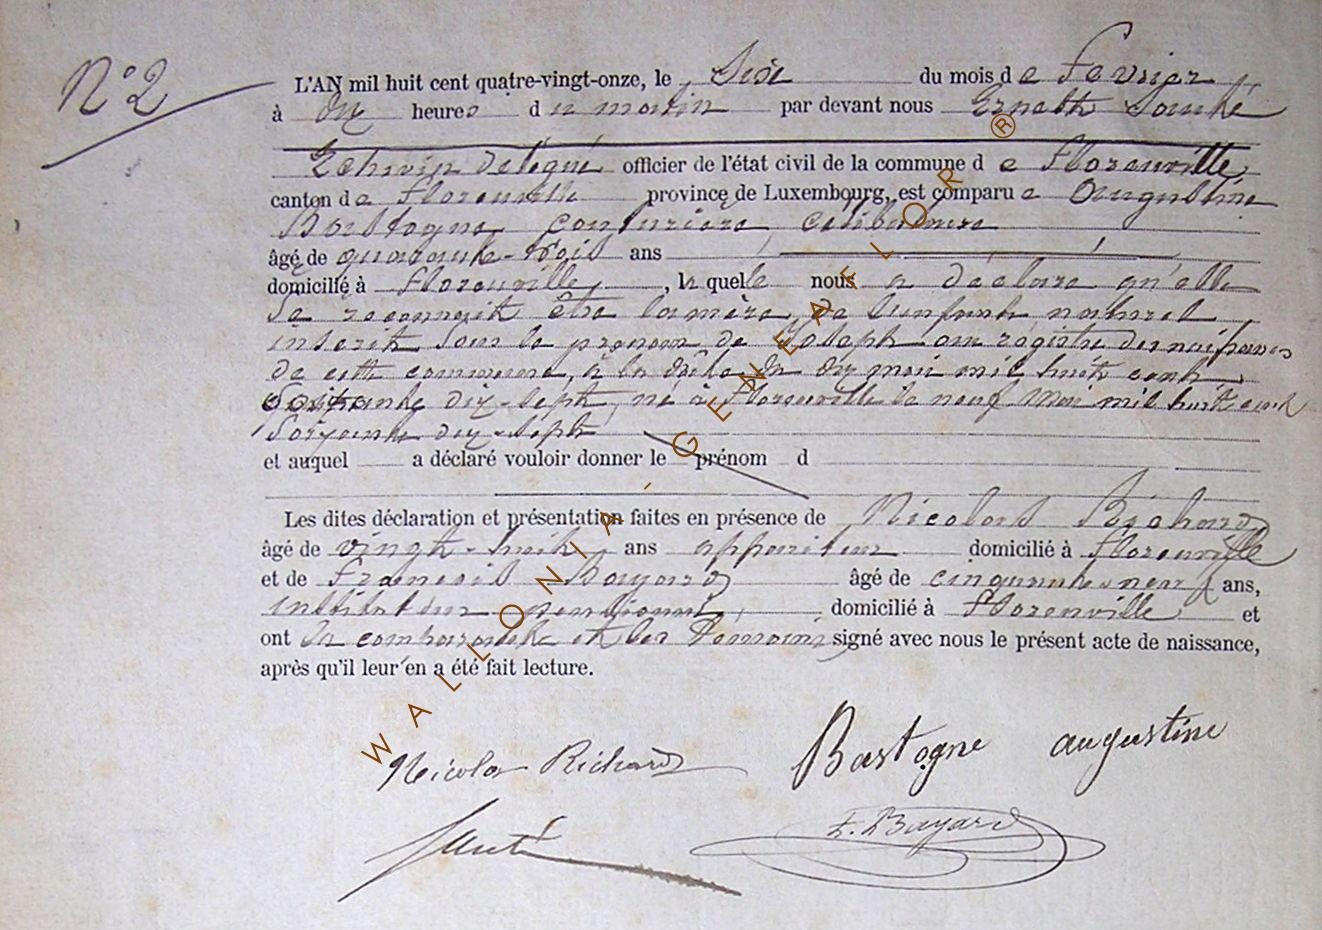 N° 2
L'AN mil huit cent quatre-vingt-onze, le Six du mois de Fevrier
à dix heures du matin par devant nous Ernest Santé
Echevin délégué officier de l'état civil de la commune de Florenville
canton de Florenville province de Luxembourg, est comparue Augustine
Bastogne, couturière, célibataire
âgé de quarante-trois ans
domicilié à Florenville, laquelle nous a déclaré qu'elle
se reconnait être la mère de l'enfant naturel
inscrit sous le prénom de Joseph au régistre des naissances
de cette commune, à la date du dix mai mil huit cent
soixante dix-sept, né à Florenville le neuf mai mil huit cent
soixante dix-sept
et auquel a déclaré vouloir donner le prénom d
Les dites déclaration et présentation faites en présence de Nicolas Richard
âgé de vingt-huit ans appariteur domicilié à Florenville
et de François Bayard âgé de cinquante neuf ans,
instituteur pensionné, domicilié à Florenville et
ont la comparante et les témoins signé avec nous le présent acte de naissance,
après qu'il leur en a été fait lecture.
Nicolas Richard
Bastogne augustine
Santé
F. Bayard
WALLONIA-GENEAFLOR ®